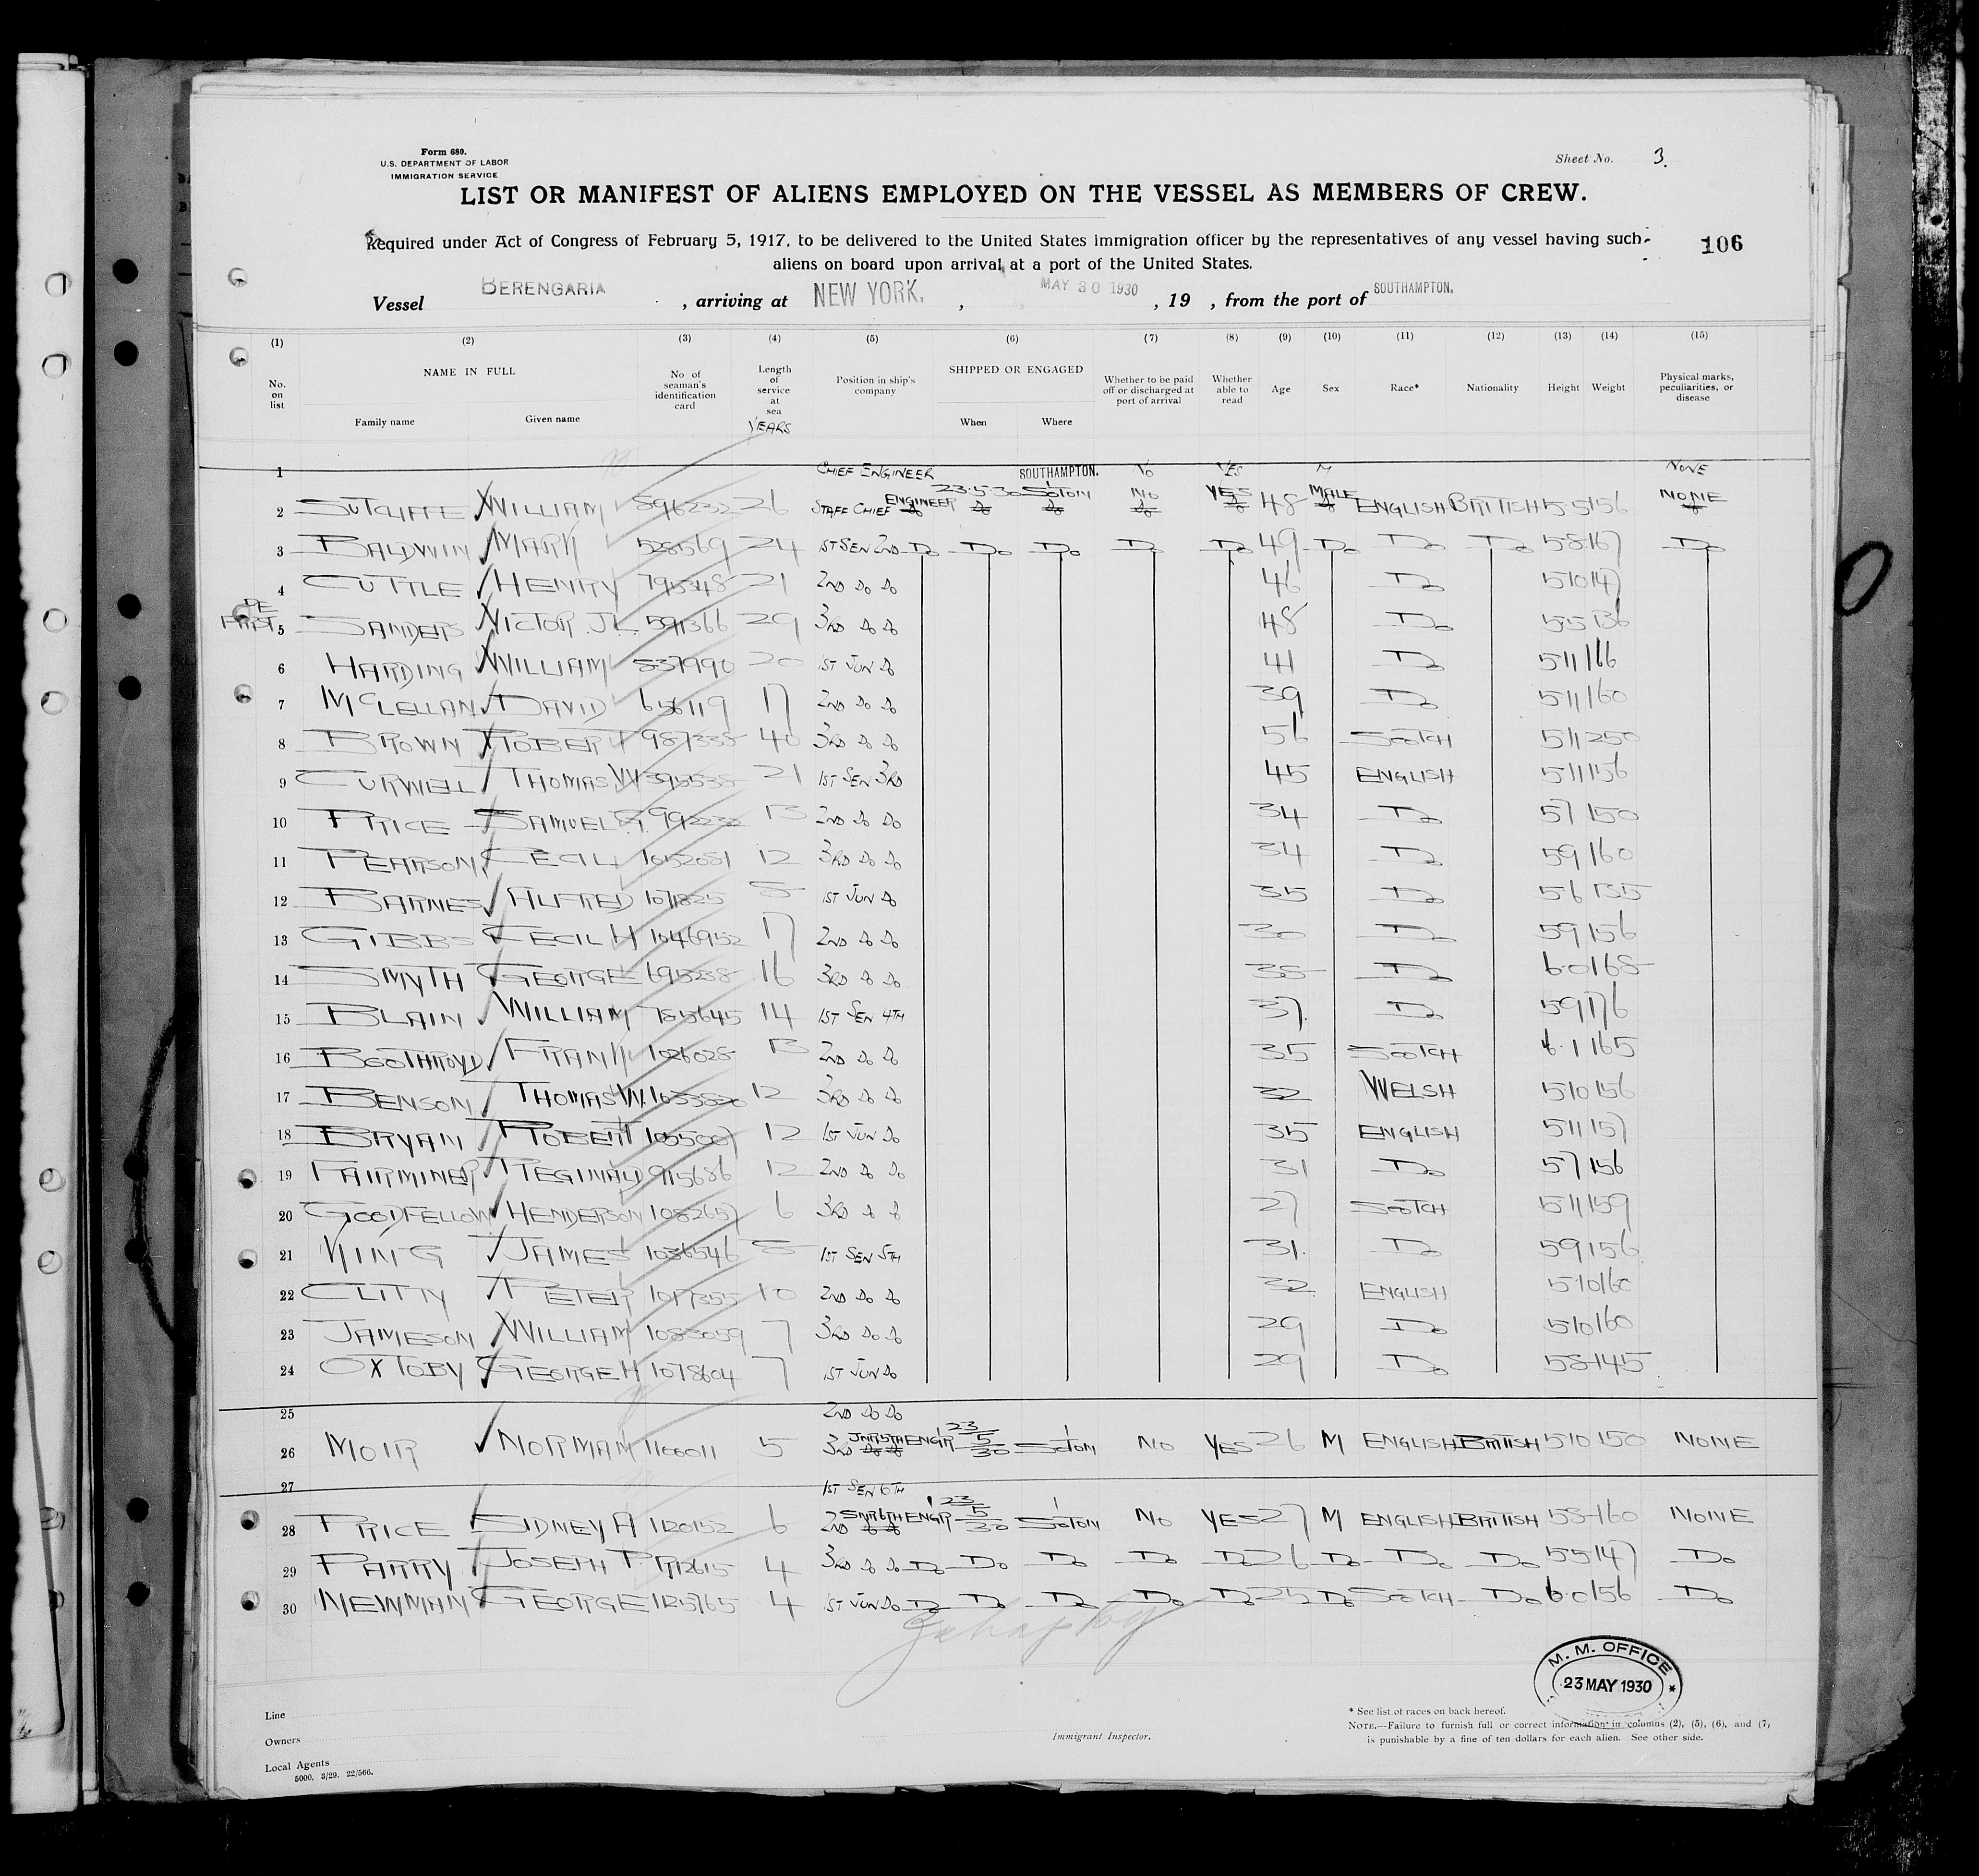 Form 680.
U.S. DEPARTMENT OF LABOR
IMMIGRATION SERVICE
Sheet No. 3.
LIST OR MANIFEST OF ALIENS EMPLOYED ON THE VESSEL AS MEMBERS OF CREW.
Required under Act of Congress of February 5, 1917, to be delivered to the United States immigration officer by the representatives of any vessel having such
aliens on board upon arrival at a port of the United States.
106
Vessel BERENGARIA , arriving at NEW YORK. , MAY 30 1930 , 19 , from the port of SOUTHAMPTON.
(1) (2) (3) (4) (5) (6) (7) (8) (9) (10) (11) (12) (13) (14) (15)
No. on list NAME IN FULL Family name Given name No. of seaman's identification card Length of service at sea YEARS Position in ship's company SHIPPED OR ENGAGED When Where Whether to be paid off or discharged at port of arrival Whether able to read Age Sex Race* Nationality Height Weight Physical marks, peculiarities, or disease
1 CHIEF ENGINEER SOUTHAMPTON. NO YES M NONE
2 SUTCLIFFE WILLIAM 896232 26 STAFF CHIEF ENGINEER 23.5.30 SOTON NO YES 48 MALE ENGLISH BRITISH 5.5 156 NONE
3 BALDWIN MARK 528569 24 1ST SEN 2ND DO DO DO DO DO 49 DO DO DO 5 8 167 DO
4 CUTTLE HENRY 795348 21 2ND DO DO 46 DO 5 10 147
DE
FIRST 5 SANDERS VICTOR. J.L. 591366 29 3RD DO DO 48 DO 5 5 136
6 HARDING WILLIAM 837990 20 1ST JUN DO 41 DO 5 11 166
7 MCLELLAN DAVID 656119 17 2ND DO DO 39 DO 5 11 160
8 BROWN ROBERT 987335 40 3RD DO DO 56 SCOTCH 5 11 250
9 CURWELL THOMAS W 395535 21 1ST SEN 3RD 45 ENGLISH 5 11 156
10 PRICE SAMUEL G. 992232 13 2ND DO DO 34 DO 5 7 150
11 PEARSON CECIL 1052081 12 3RD DO DO 34 DO 5 9 160
12 BARNES ALFRED 1071825 8 1ST JUN DO 35 DO 5 6 135
13 GIBBS CECIL H 1046952 17 2ND DO DO 30 DO 5 9 156
14 SMYTH GEORGE 695238 16 3RD DO DO 38 DO 6.0 168
15 BLAIN WILLIAM 785645 14 1ST SEN 4TH 37. DO 5 9 176
16 BOOTHROYD FRANK 1026028 13 2ND DO DO 35 SCOTCH 6.1 165
17 BENSON THOMAS W. 1033820 12 3RD DO DO 32 WELSH 5 10 156
18 BRYAN ROBERT 1055007 12 1ST JUN DO 35 ENGLISH 5 11 157
19 FAIRMINER REGINALD 915686 12 2ND DO DO 31 DO 5 7 156
20 GOODFELLOW HENDERSON 1082657 6 3RD DO DO 27 SCOTCH 5 11 159
21 KING JAMES 1036546 8 1ST SEN 5TH 31. DO 5 9 156
22 CLITTY PETER 1017355 10 2ND DO DO 32 ENGLISH 5 10 160
23 JAMESON WILLIAM 1083059 7 3RD DO DO 29 DO 5 10 160
24 OXTOBY GEORGE H 1078604 7 1ST JUN DO 29 DO 5 8 145
25 2ND DO DO
26 MOIR NORMAN 1166011 5 3RD JNR 5TH ENGR 23/5/30 SOTON NO YES 26 M ENGLISH BRITISH 5 10 150 NONE
27 1ST SEN 6TH
28 PRICE SIDNEY A 1120152 6 2ND SNR 6TH ENGR 23/5/30 SOTON NO YES 27 M ENGLISH BRITISH 5 8 160 NONE
29 PARRY JOSEPH P. 1112615 4 3RD DO DO DO DO DO DO DO 26 DO DO DO 5 5 147 DO
30 NEWMAN GEORGE 1125765 4 1ST JUN DO DO DO DO DO DO 25 DO SCOTCH DO 6.0 156 DO
M. M. OFFICE
23 MAY 1930
Line
Owners
Local Agents
5000. 3/29. 22/566.
Immigrant Inspector.
* See list of races on back hereof.
NOTE.—Failure to furnish full or correct information in columns (2), (5), (6), and (7)
is punishable by a fine of ten dollars for each alien. See other side.